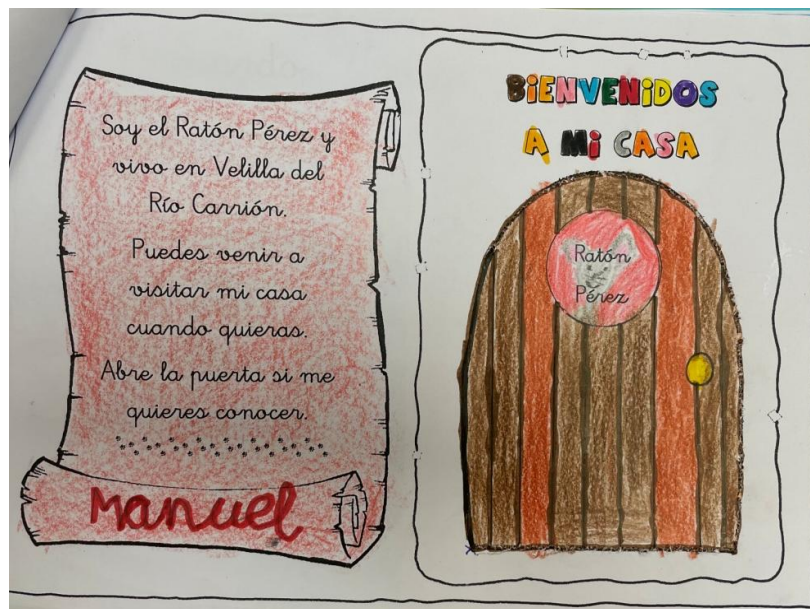 Soy el Ratón Pérez y
vivo en Velilla del
Río Carrión.
Puedes venir a
visitar mi casa
cuando quieras.
Abre la puerta si me
quieres conocer.
Manuel
BiENVENiDOS
A Mi CASA
Ratón
Pérez